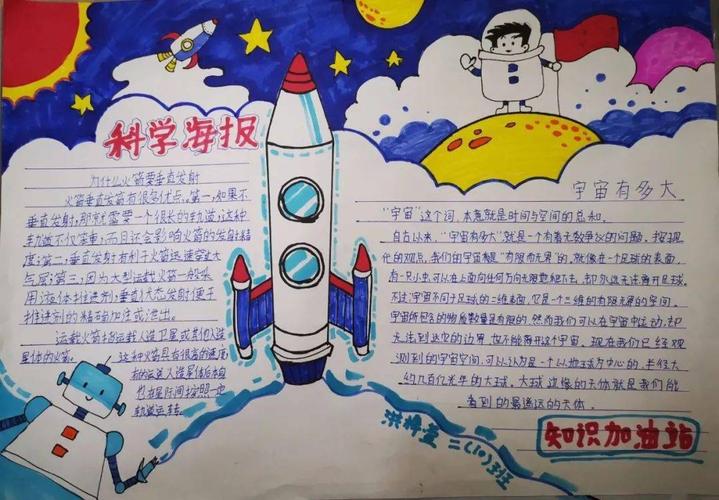 科学海报
为什么火箭要垂直发射
火箭垂直发射有很多优点。第一,如果不
垂直发射,那就需要一个很长的轨道,这种
轨道不仅笨重,而且还会影响火箭的发射精
度;第二,垂直发射有利于火箭迅速穿过大
气层;第三,因为大型运载火箭一般采
用液体推进剂,垂直状态发射便于
推进剂的精确加注或泄出。
运载火箭指运载人造卫星或其他人造
星体的火箭。这种火箭具有很高的速度,
轨道运转
宇宙有多大
“宇宙”这个词,本意就是时间与空间的总和。
自古以来,“宇宙有多大”就是一个有着无数争议的问题。按现
代的观点,我们的宇宙是“有限而无界”的,就像在一个足球的表面,
有一只小虫可以在上面向任何方向无限爬下去,却永远无法离开足球。
不过宇宙不同于足球的二维表面,它是一个三维的有限无界的空间。
宇宙所包含的物质数量是有限的,然而我们可以在宇宙中运动,却
无法到达它的边界,也不能离开这个宇宙。现在我们已经观
测到的宇宙空间,可以认为是一个以地球为中心的,半径大
约几百亿光年的大球。大球边缘的天体就是我们能
看到的最遥远的天体。
知识加油站
二(10)班